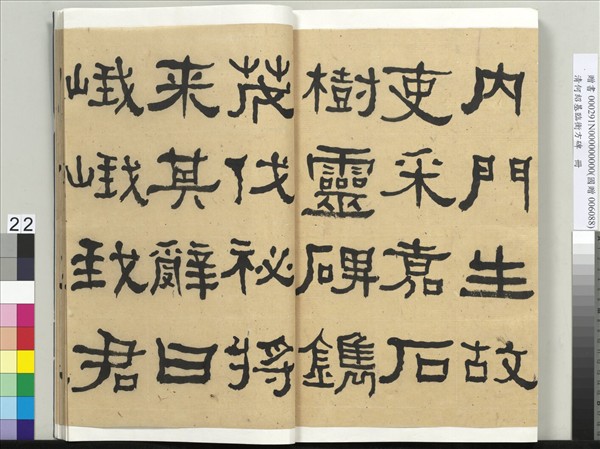 内門生故
吏采嘉石
樹靈碑鐫
茂伐祕將
来其辭曰
峨峨我君
贈書 000291N000000000(國贈 006088)
清何紹基臨衡方碑 冊
22